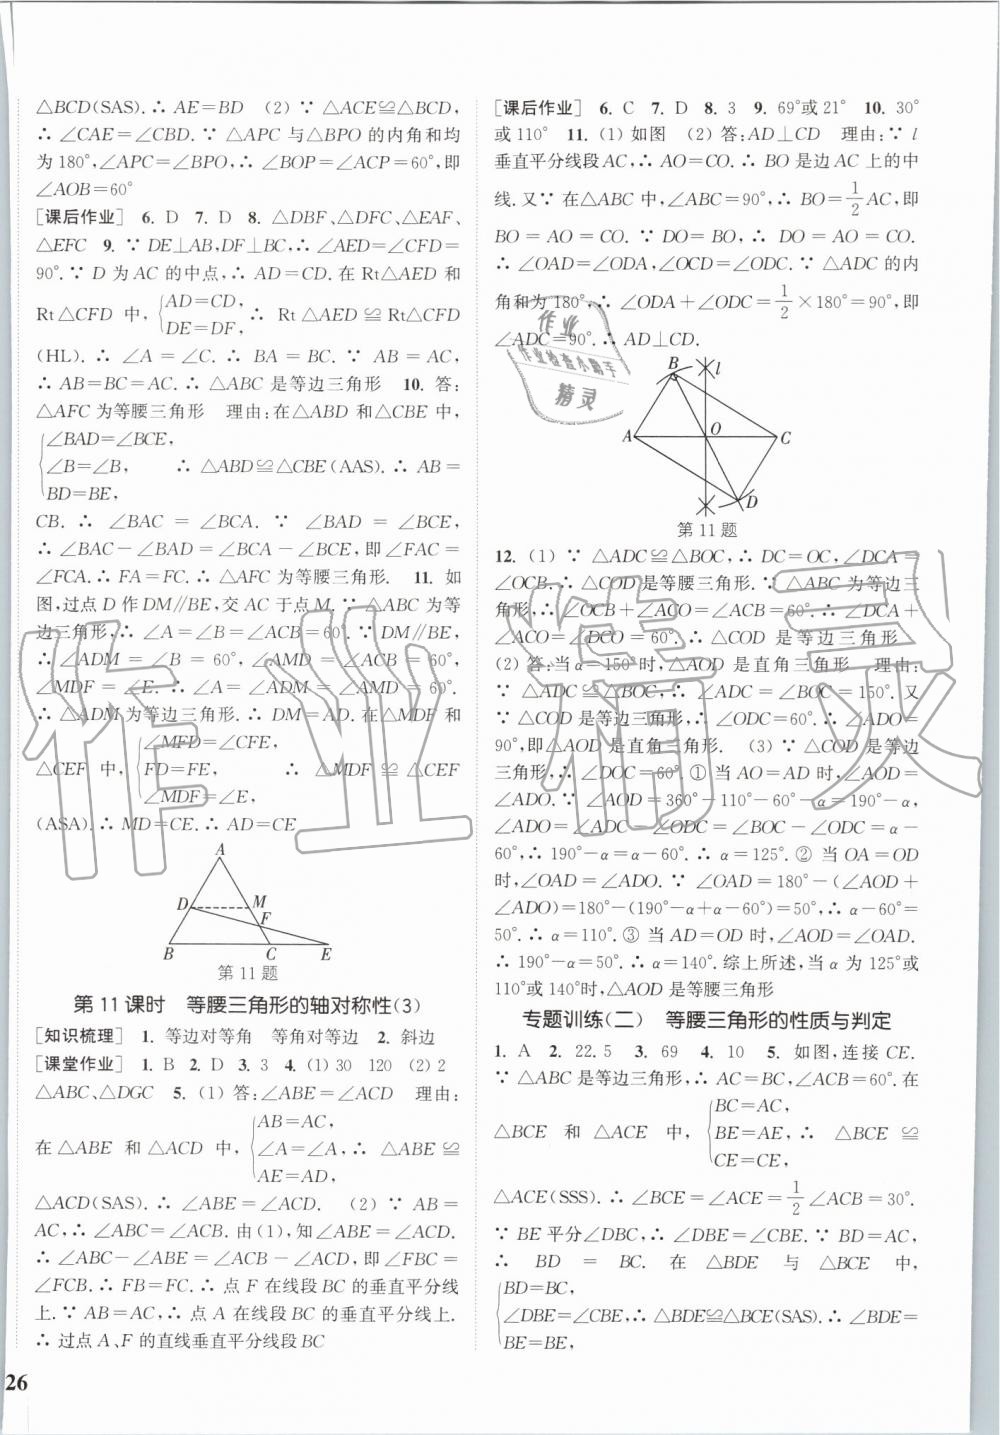 △BCD(SAS).∴ AE=BD (2) ∵ △ACE≌△BCD,
∴ ∠CAE=∠CBD.∵ △APC 与△BPO 的内角和均
为 180°,∠APC=∠BPO,∴ ∠BOP=∠ACP=60°,即
∠AOB=60°
[课后作业] 6. D 7. D 8. △DBF、△DFC、△EAF、
△EFC 9. ∵ DE⊥AB,DF⊥BC,∴ ∠AED=∠CFD=
90°.∵ D 为 AC 的中点,∴ AD=CD.在 Rt△AED 和
Rt△CFD 中,{AD=CD, DE=DF, ∴ Rt△AED≌Rt△CFD
(HL).∴ ∠A=∠C.∴ BA=BC.∵ AB=AC,
∴ AB=BC=AC.∴ △ABC 是等边三角形 10. 答:
△AFC 为等腰三角形 理由:在△ABD 和△CBE 中,
{∠BAD=∠BCE,
∠B=∠B, ∴ △ABD≌△CBE(AAS).∴ AB=
BD=BE,
CB.∴ ∠BAC=∠BCA.∵ ∠BAD=∠BCE,
∴ ∠BAC-∠BAD=∠BCA-∠BCE,即∠FAC=
∠FCA.∴ FA=FC.∴ △AFC 为等腰三角形. 11. 如
图,过点 D 作 DM∥BE,交 AC 于点 M.∵ △ABC 为等
边三角形,∴ ∠A=∠B=∠ACB=60°.∵ DM∥BE,
∴ ∠ADM=∠B=60°,∠AMD=∠ACB=60°,
∠MDF=∠E.∴ ∠A=∠ADM=∠AMD=60°.
∴ △ADM 为等边三角形.∴ DM=AD.在△MDF 和
△CEF 中,{∠MFD=∠CFE, FD=FE, ∠MDF=∠E, ∴ △MDF≌△CEF
(ASA).∴ MD=CE.∴ AD=CE
A
D
M
F
B
C
E
第 11 题
第 11 课时 等腰三角形的轴对称性(3)
[知识梳理] 1. 等边对等角 等角对等边 2. 斜边
[课堂作业] 1. B 2. D 3. 3 4. (1) 30 120 (2) 2
△ABC、△DGC 5. (1) 答:∠ABE=∠ACD 理由:
在△ABE 和△ACD 中,{AB=AC, ∠A=∠A, AE=AD, ∴ △ABE≌
△ACD(SAS).∴ ∠ABE=∠ACD. (2) ∵ AB=
AC,∴ ∠ABC=∠ACB.由(1),知∠ABE=∠ACD.
∴ ∠ABC-∠ABE=∠ACB-∠ACD,即∠FBC=
∠FCB.∴ FB=FC.∴ 点 F 在线段 BC 的垂直平分线
上.∵ AB=AC,∴ 点 A 在线段 BC 的垂直平分线上.
∴ 过点 A、F 的直线垂直平分线段 BC
26
[课后作业] 6. C 7. D 8. 3 9. 69°或 21° 10. 30°
或 110° 11. (1) 如图 (2) 答:AD⊥CD 理由:∵ l
垂直平分线段 AC,∴ AO=CO.∴ BO 是边 AC 上的中
线.又∵ 在△ABC 中,∠ABC=90°,∴ BO=1/2 AC,即
BO=AO=CO.∵ DO=BO,∴ DO=AO=CO.
∴ ∠OAD=∠ODA,∠OCD=∠ODC.∵ △ADC 的内
角和为 180°,∴ ∠ODA+∠ODC=1/2×180°=90°,即
∠ADC=90°.∴ AD⊥CD.
作业
作业检查小帮手
精灵
B
l
A
O
C
D
第 11 题
12. (1) ∵ △ADC≌△BOC,∴ DC=OC,∠DCA=
∠OCB.∴ △COD 是等腰三角形.∵ △ABC 为等边三
角形,∴ ∠OCB+∠ACO=∠ACB=60°.∴ ∠DCA+
∠ACO=∠DCO=60°.∴ △COD 是等边三角形
(2) 答:当 α=150°时,△AOD 是直角三角形 理由:
∵ △ADC≌△BOC,∴ ∠ADC=∠BOC=150°.又
∵ △COD 是等边三角形,∴ ∠ODC=60°.∴ ∠ADO=
90°,即△AOD 是直角三角形. (3) ∵ △COD 是等边
三角形,∴ ∠DOC=60°.① 当 AO=AD 时,∠AOD=
∠ADO.∵ ∠AOD=360°-110°-60°-α=190°-α,
∠ADO=∠ADC-∠ODC=∠BOC-∠ODC=α-
60°,∴ 190°-α=α-60°.∴ α=125°.② 当 OA=OD
时,∠OAD=∠ADO.∵ ∠OAD=180°-(∠AOD+
∠ADO)=180°-(190°-α+α-60°)=50°,∴ α-60°=
50°.∴ α=110°.③ 当 AD=OD 时,∠AOD=∠OAD.
∴ 190°-α=50°.∴ α=140°.综上所述,当 α 为 125°或
110°或 140°时,△AOD 是等腰三角形
专题训练(二) 等腰三角形的性质与判定
1. A 2. 22.5 3. 69 4. 10 5. 如图,连接 CE.
∵ △ABC 是等边三角形,∴ AC=BC,∠ACB=60°.在
△BCE 和△ACE 中,{BC=AC, BE=AE, CE=CE, ∴ △BCE≌
△ACE(SSS).∴ ∠BCE=∠ACE=1/2∠ACB=30°.
∵ BE 平分∠DBC,∴ ∠DBE=∠CBE.∵ BD=AC,
∴ BD=BC.在△BDE 与△BCE 中,
{BD=BC,
∠DBE=∠CBE,∴ △BDE≌△BCE(SAS).∴ ∠BDE=
BE=BE,
作业精灵